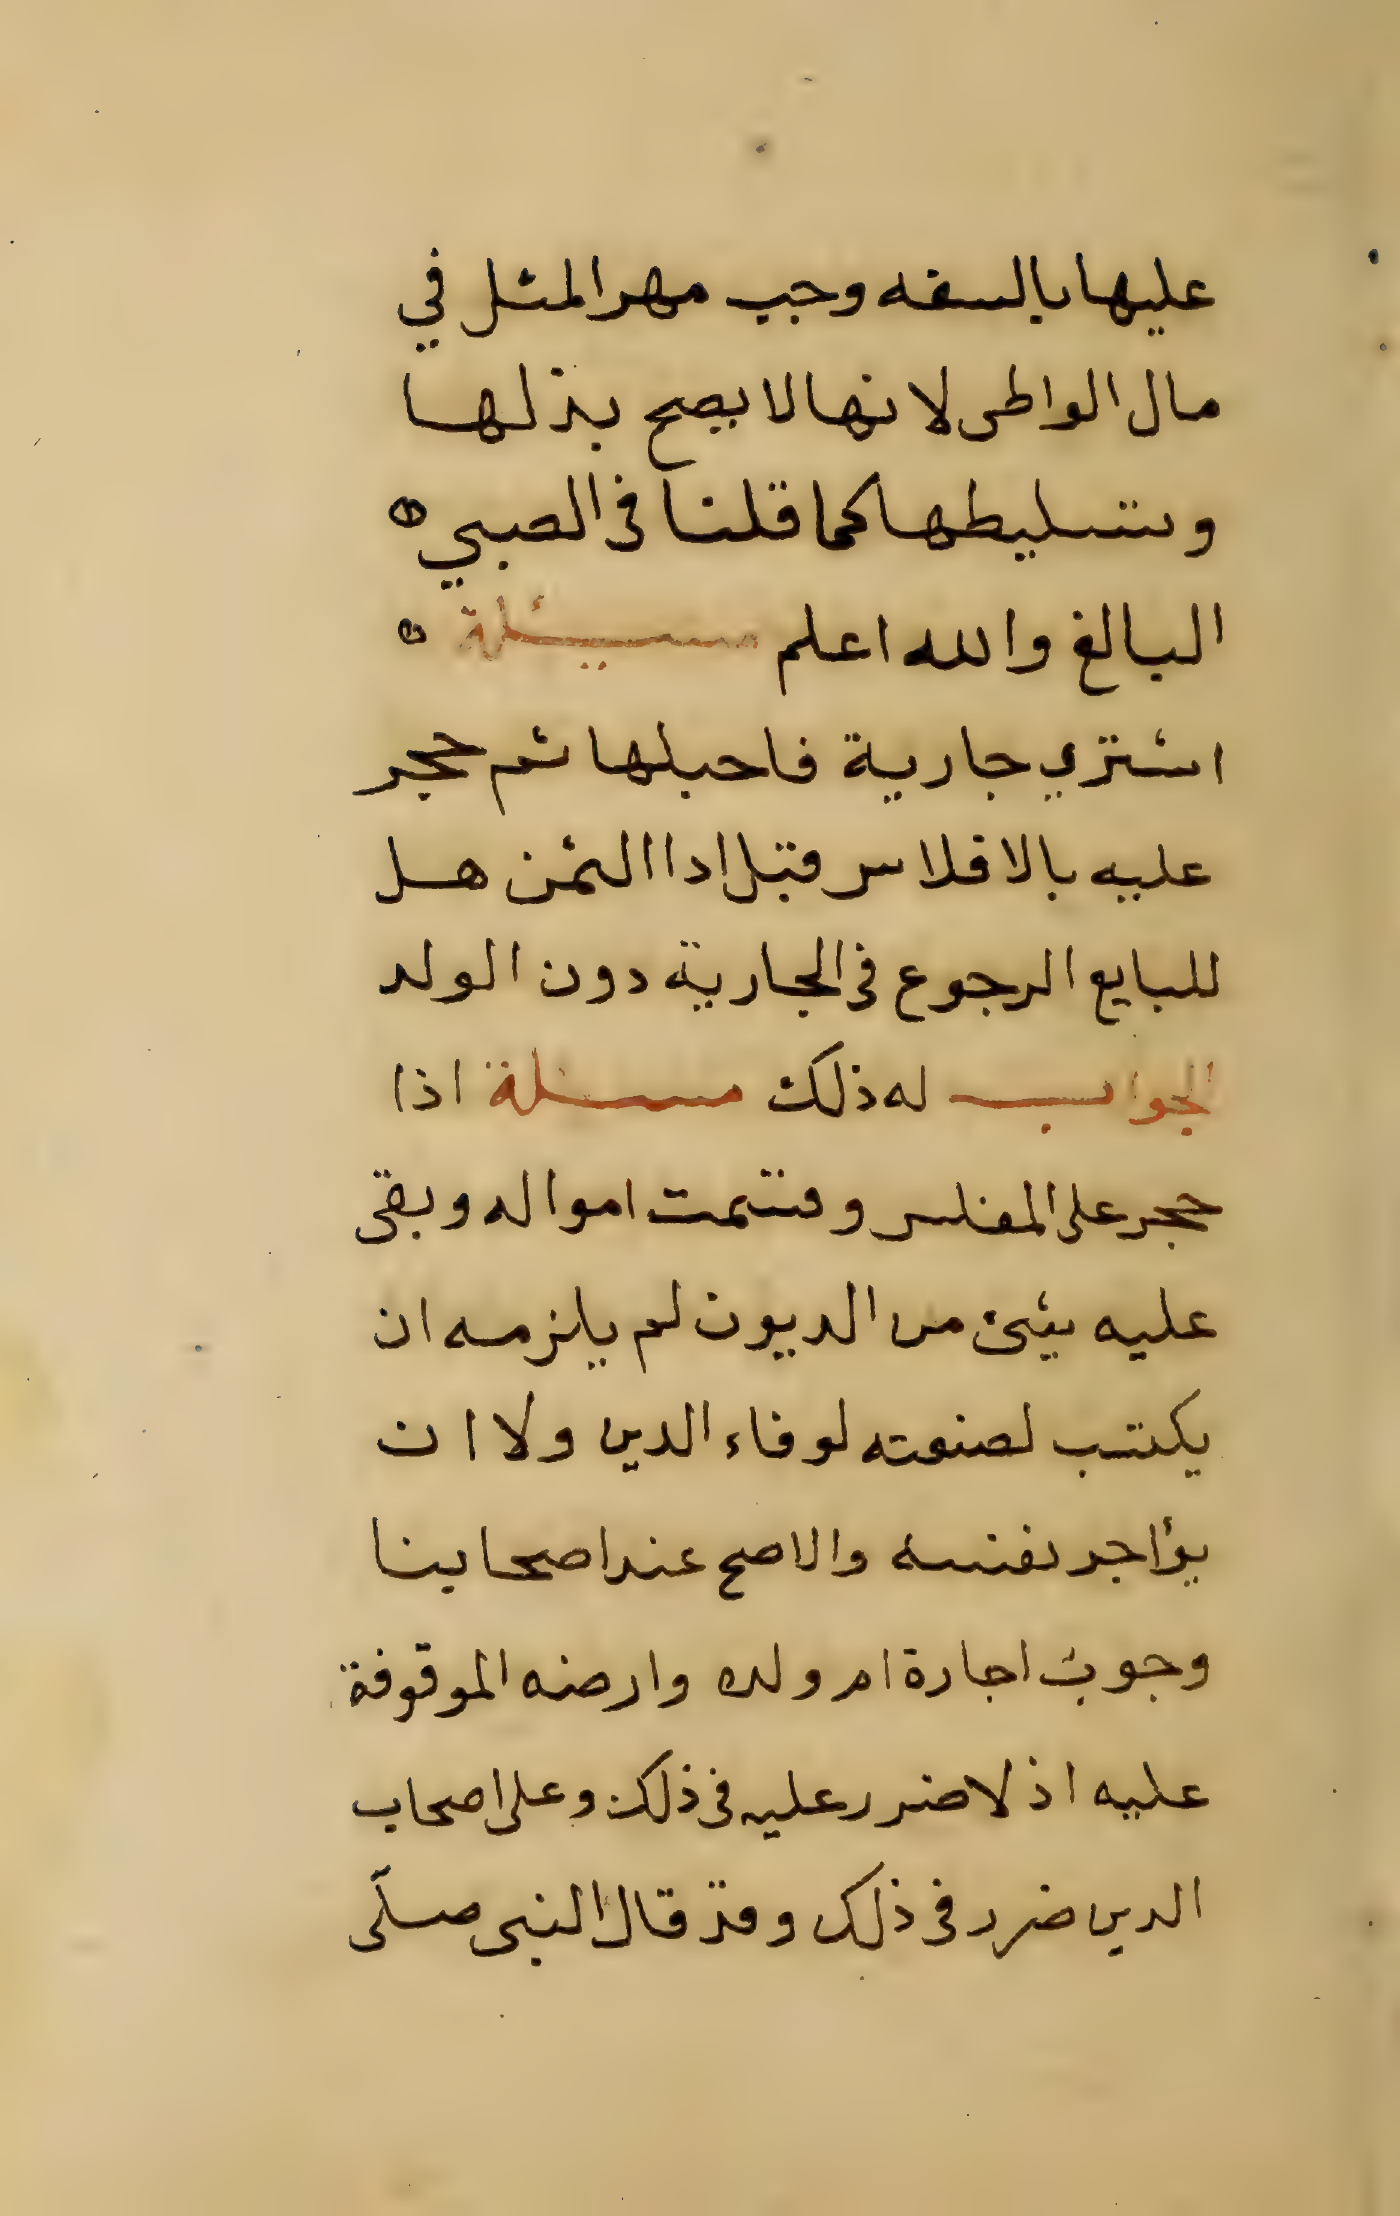 عليها بالسفه وجب مهر المثل في
مال الواطى لانها لا يصح بذلها
وتسليطها كما قلنا فى الصبي
البالغ والله اعلم مسيئلة
اشتري جارية فاحبلها ثم حجر
عليه بالافلاس قبل ادا الثمن هل
للبايع الرجوع فى الجارية دون الولد
الجواب له ذلك مسئلة اذا
حجر على المفلس وقسمت امواله وبقى
عليه شئ من الديون لم يلزمه ان
يكتسب لصنعته لوفاء الدين ولا ان
يؤاجر نفسه والاصح عند اصحابنا
وجوب اجارة ام ولده وارضه الموقوفة
عليه اذ لا ضرر عليه فى ذلك وعلى اصحاب
الدين ضرر فى ذلك وقد قال النبى صلى